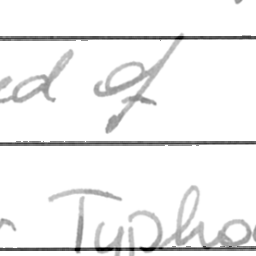 ed of
Typho